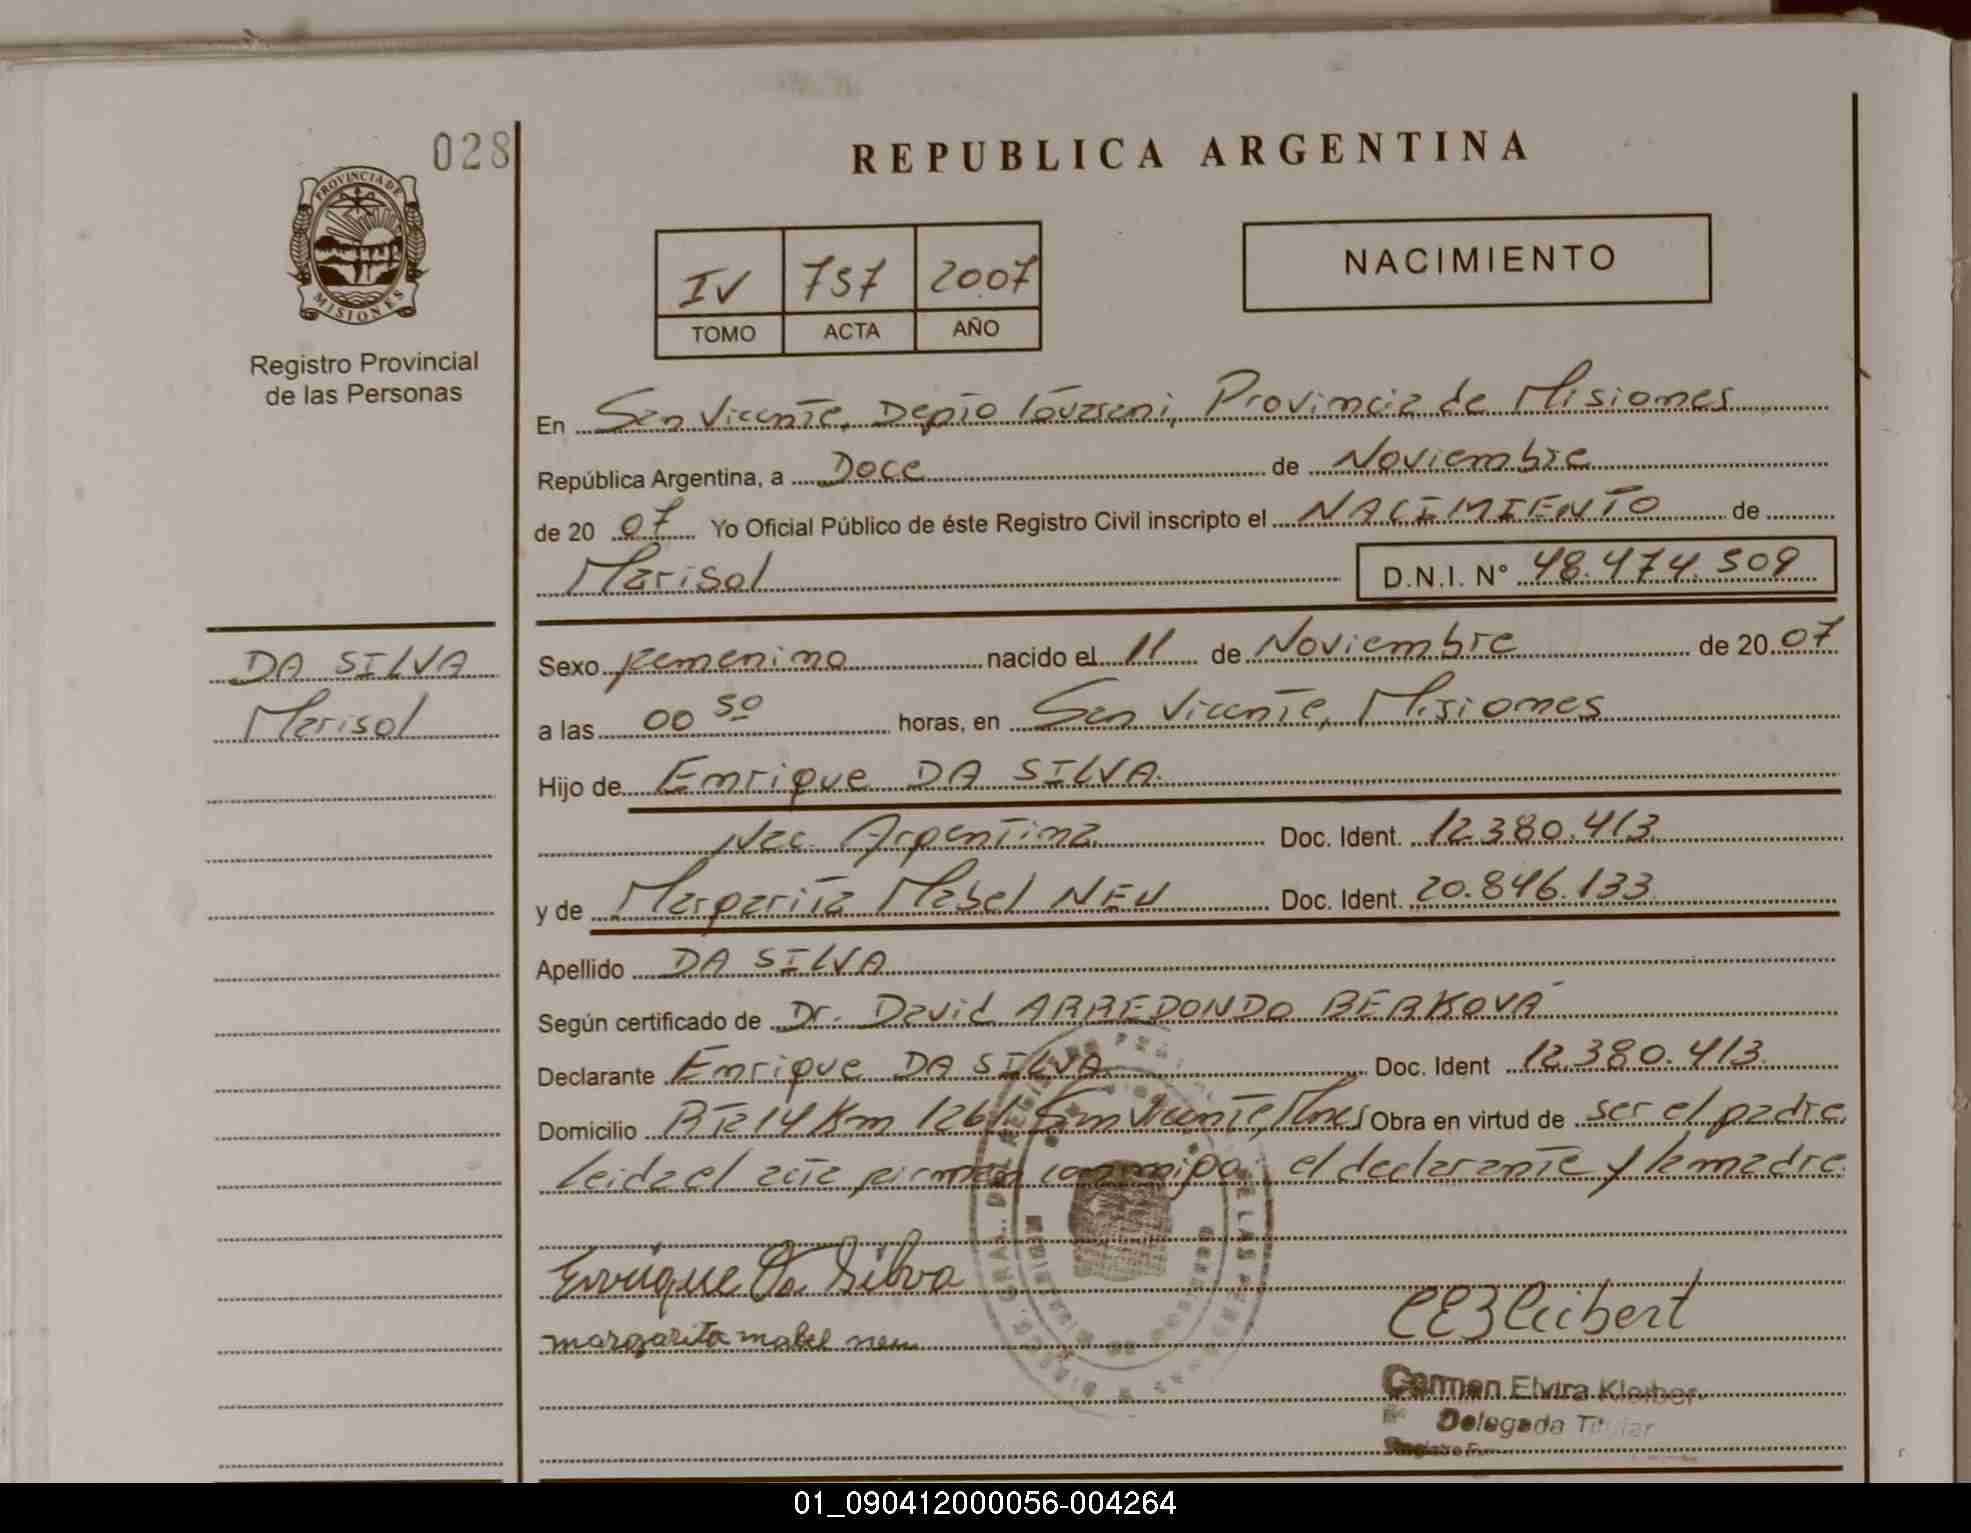 028
REPUBLICA ARGENTINA
PROVINCIA DE
MISIONES
Registro Provincial
de las Personas
IV 757 2007
TOMO ACTA AÑO
NACIMIENTO
En San Vicente, Depto Guaraní, Provincia de Misiones
República Argentina, a Doce de Noviembre
de 20 07 Yo Oficial Público de éste Registro Civil inscripto el NACIMIENTO de
Marisol D.N.I. N° 48.474.509
DA SILVA
Marisol
Sexo femenino nacido el 11 de Noviembre de 20 07
a las 00 50 horas, en San Vicente, Misiones
Hijo de Enrique DA SILVA
Nac. Argentina Doc. Ident. 12.380.413
y de Margarita Mabel NEU Doc. Ident. 20.846.133
Apellido DA SILVA
Según certificado de Dr. David ARREDONDO BERKOVA
Declarante Enrique DA SILVA Doc. Ident 12.380.413
Domicilio RTE 14 Km 1261 San Vicente, Mnes Obra en virtud de ser el padre
Leida el acta firman conmigo el declarante y la madre
Enrique Da Silva
margarita mabel neu
CEKleibert
Carmen Elvira Kleiber
Delegada Titular
01_090412000056-004264